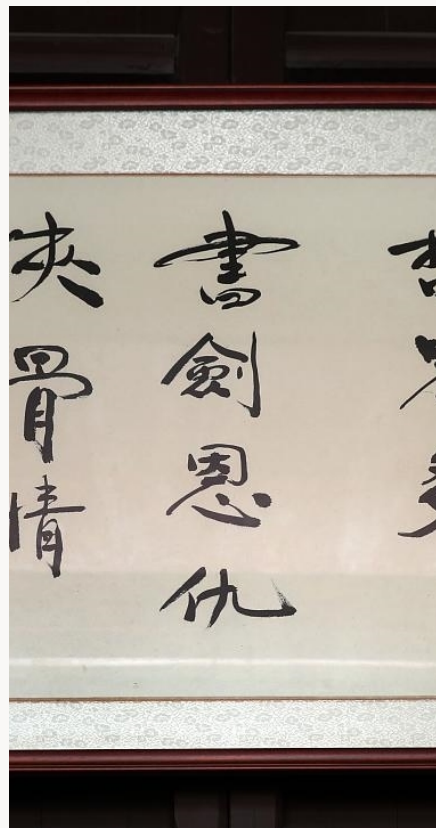 書劍恩仇
俠骨情